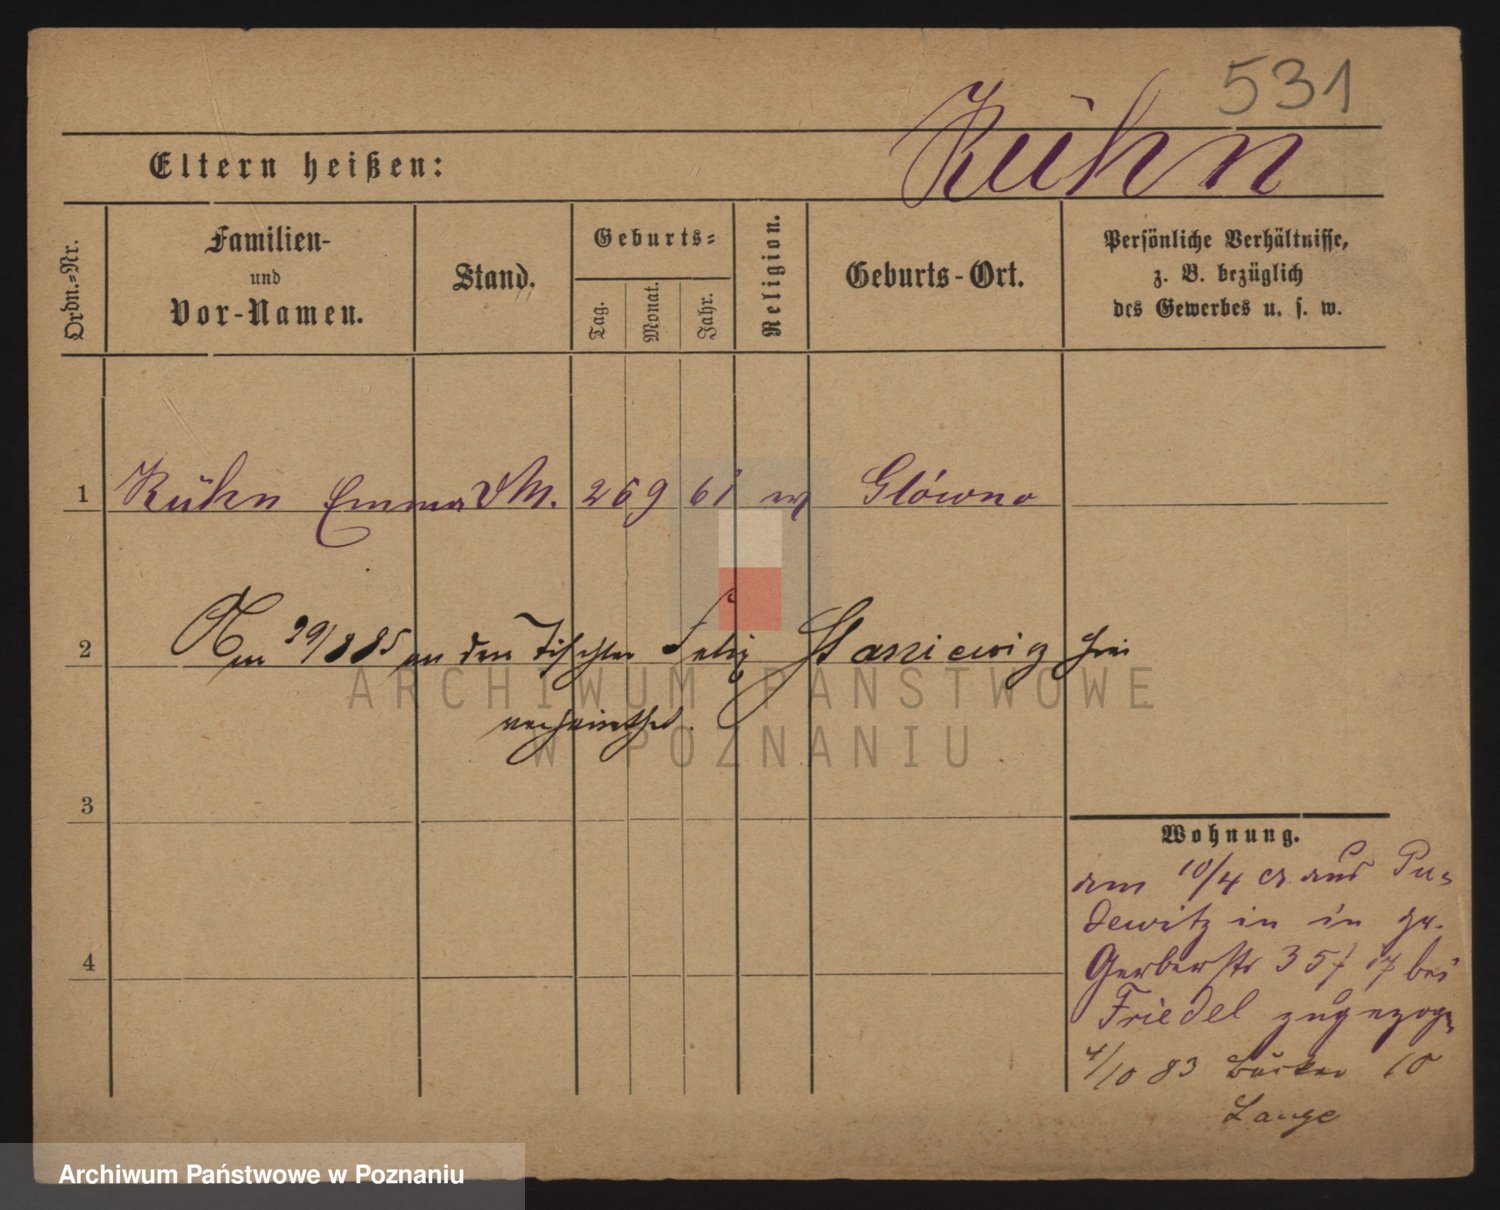 531
Kühn
Eltern heißen:
Ordn.-Nr.
Familien-
und
Vor-Namen.
Stand.
Geburts-
Tag.
Monat.
Jahr.
Religion.
Geburts-Ort.
Persönliche Verhältnisse,
z. B. bezüglich
des Gewerbes u. s. w.
1 Kühn Emma DM. 26 9 61 Główno
2 Am 29/8 85 an den Tischler Felix Stasiewicz hier
verheirathet.
ARCHIWUM PAŃSTWOWE
W POZNANIU
3
Wohnung.
am 10/4 cr. aus Pu-
dewitz in in gr.
Gerberstr 35/ 17 bei
Friedel zugezogen
4
4/10 83 Bäcker 10
Lange
Archiwum Państwowe w Poznaniu